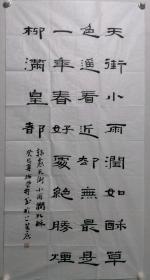 天街小雨潤如酥草
色遥看近却無最是
一年春好處絕勝煙
柳滿皇都
韓愈天街小雨潤如酥